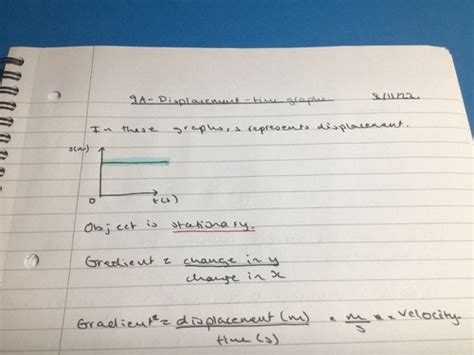 9A - Displacement - time graphs 8/11/22
In these graphs, s represents displacement.
s(m)
0 t(s)
Object is stationary.
Gradient = change in y
change in x
Gradient = displacement (m) = m = velocity
time (s) s